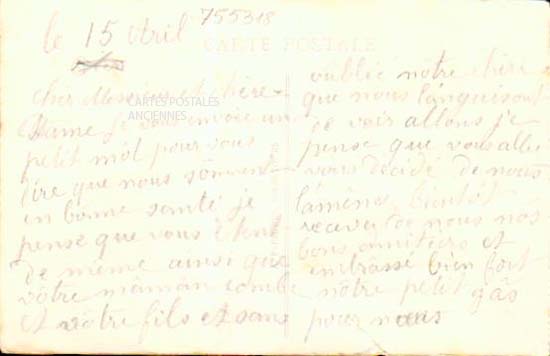 755318
le 15 Avril
CARTE POSTALE
cher Monsieur et chère
CARTES POSTALES
ANCIENNES
Dame je vous envoie un
petit mot pour vous
dire que nous sommes
en bonne santé je
pense que vous
de même ainsi que
vôtre maman
et vôtre fils et sans
oublié nôtre chère
que nous languisont
de voir allons je
pense que vous allez
vous décidé de nous
laméner bientôt
recever de nous nos
bons amitiers et
embrassé bien fort
nôtre petit gâs
pour nous